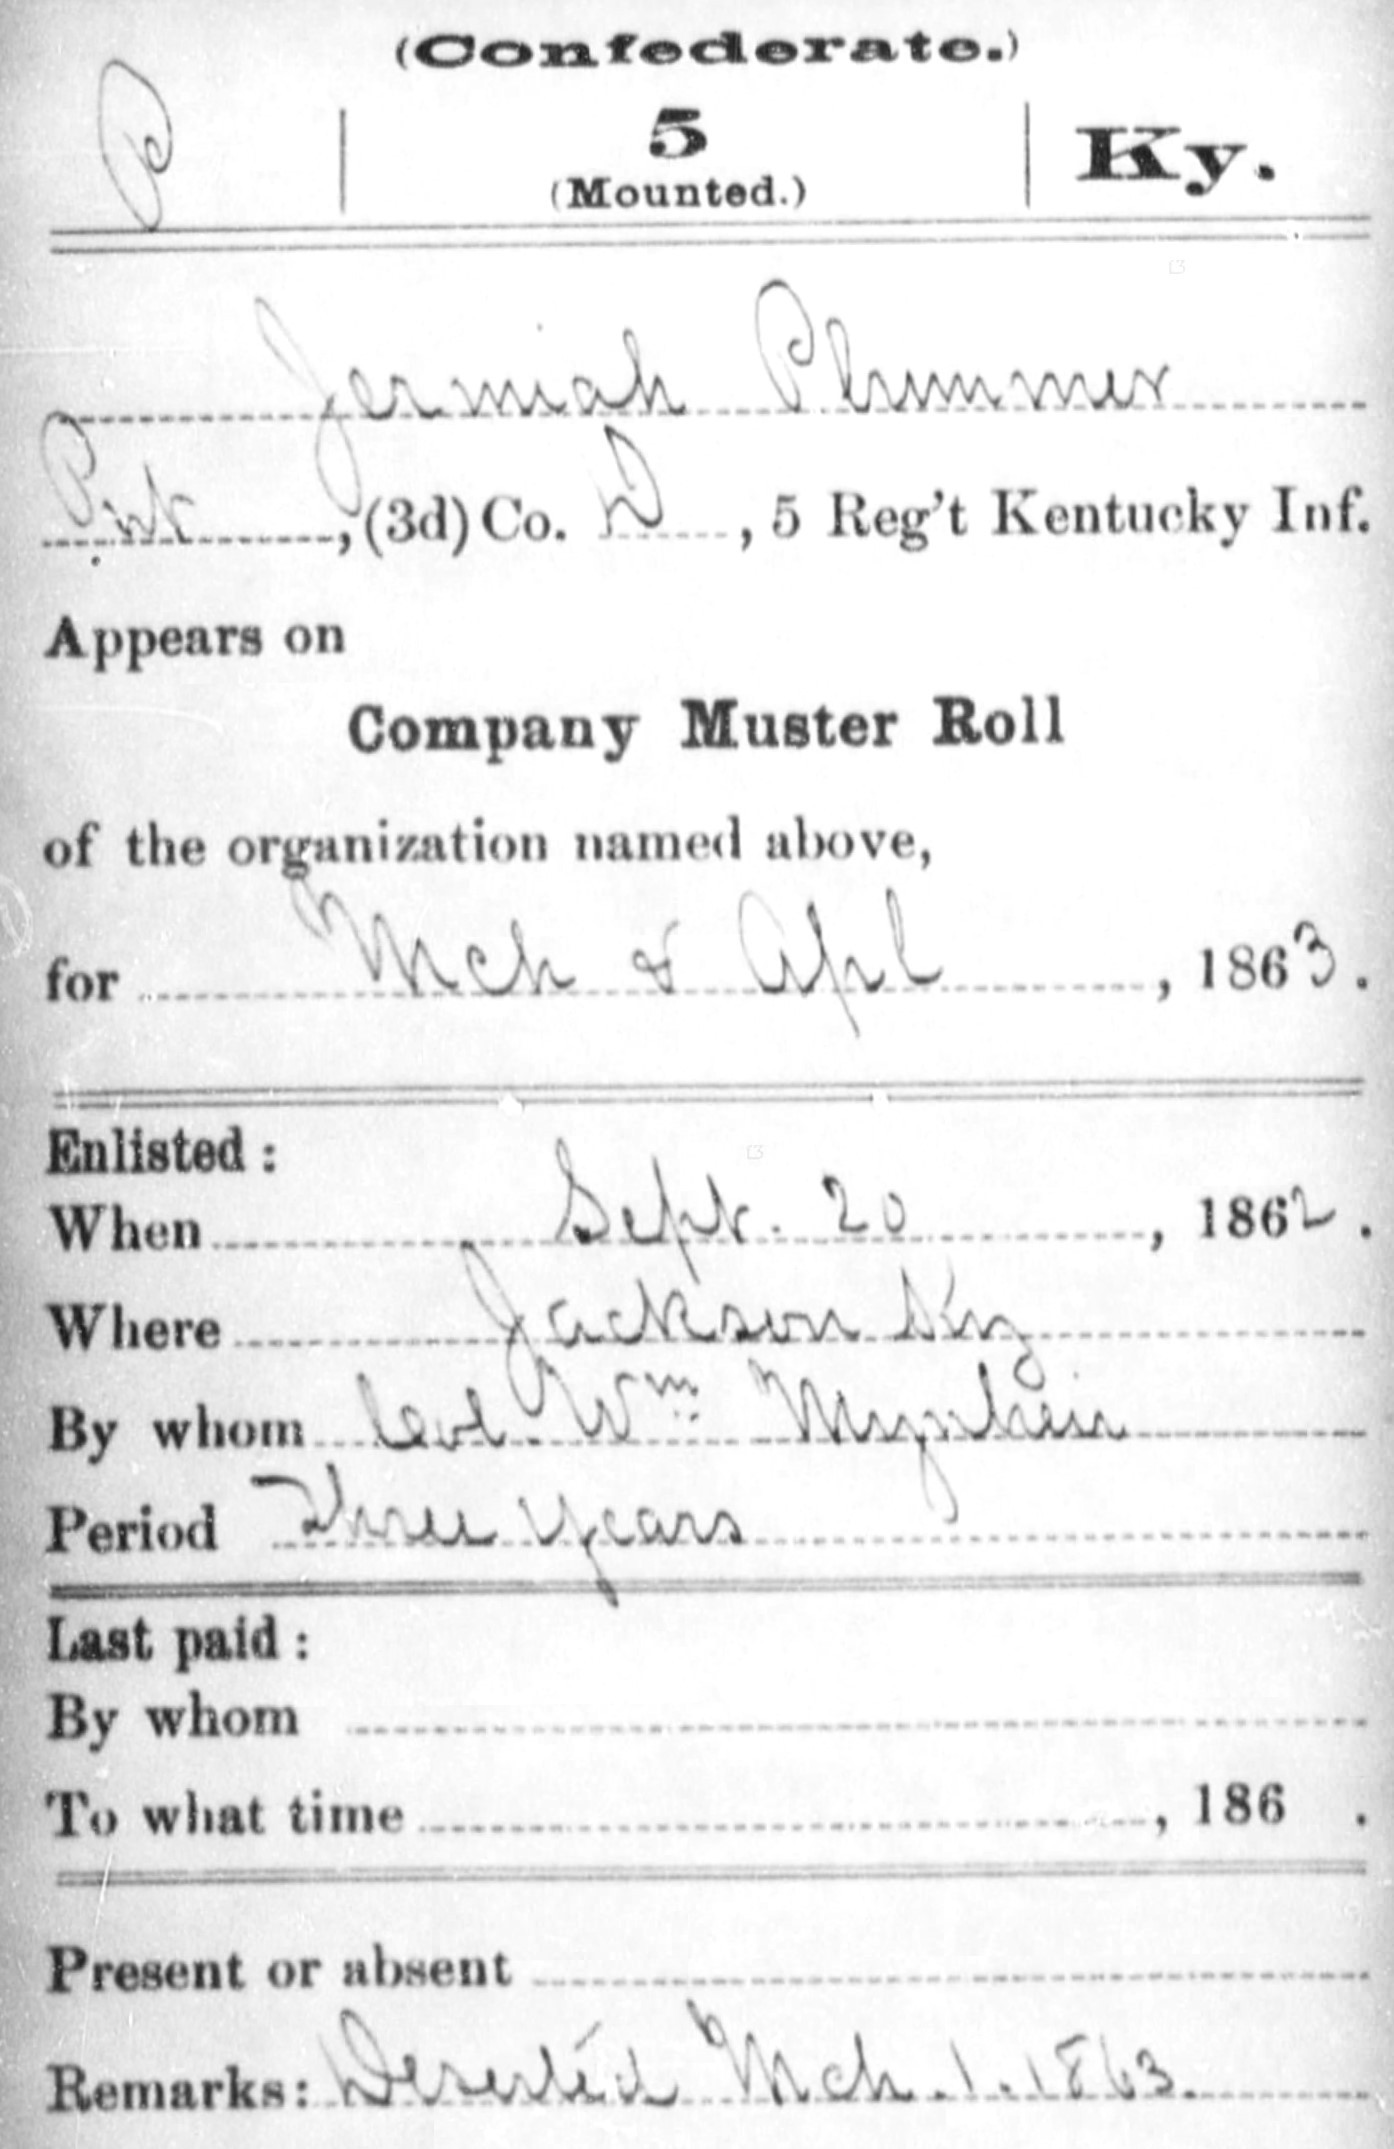 (Confederate.)
P | 5 | Ky.
(Mounted.)
Jermiah Plummer
Pvt, (3d) Co. D, 5 Reg't Kentucky Inf.
Appears on
Company Muster Roll
of the organization named above,
for Mch & Apl, 1863.
Enlisted:
When Sept. 20, 1862.
Where Jackson Ky
By whom Col. Wm
Period Three years
Last paid:
By whom
To what time, 186 .
Present or absent
Remarks: Deserted Mch. 1. 1863.